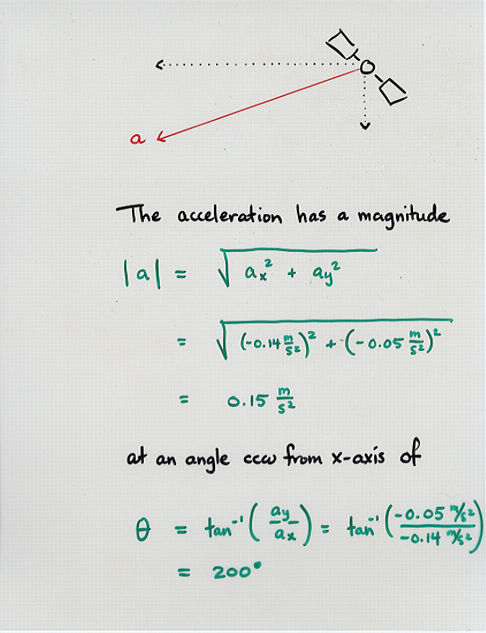 a
The acceleration has a magnitude
|a| = √(ax² + ay²)
= √((-0.14 m/s²)² + (-0.05 m/s²)²)
= 0.15 m/s²
at an angle ccw from x-axis of
θ = tan⁻¹(ay/ax) = tan⁻¹(-0.05 m/s²/-0.14 m/s²)
= 200°